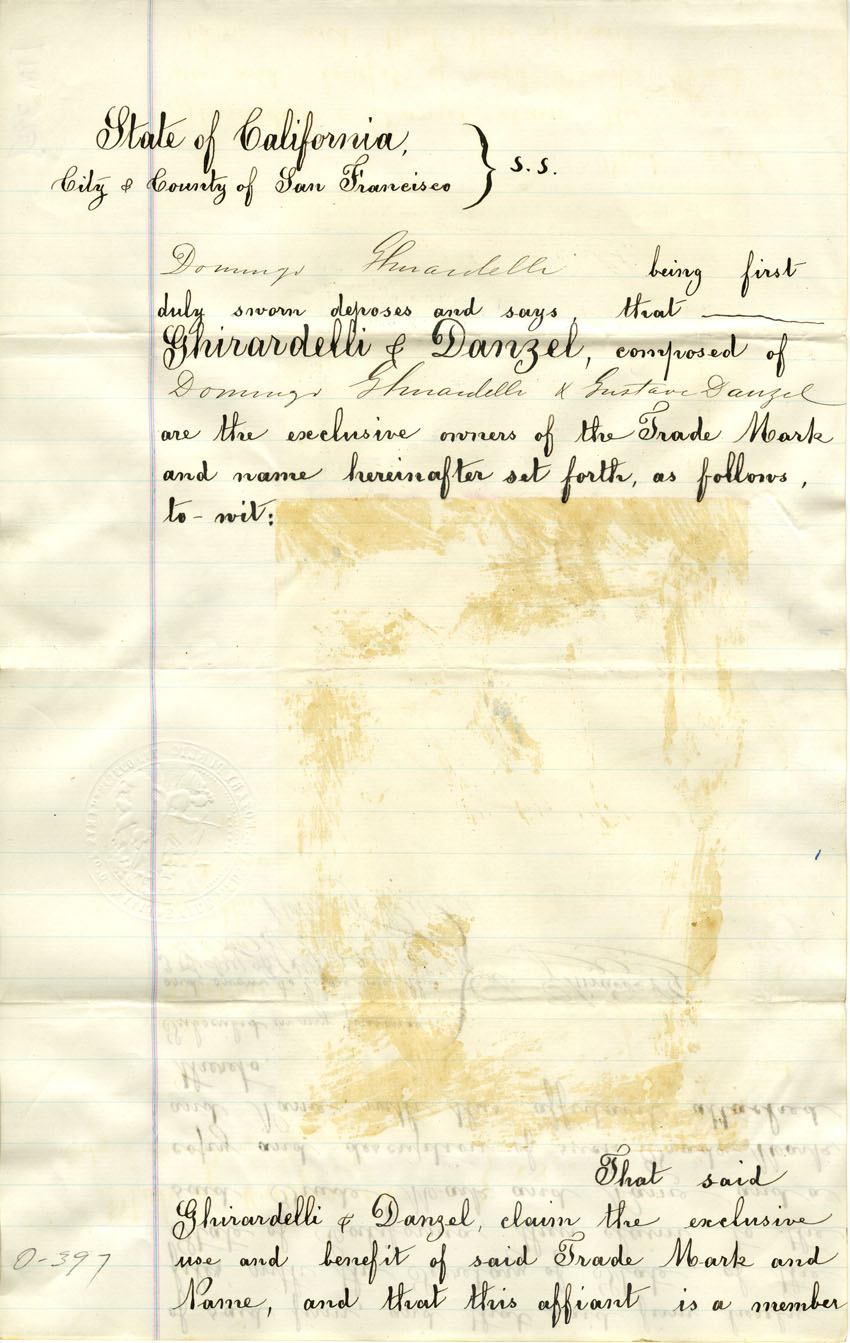 State of California,
City & County of San Francisco } s.s.
Domingo Ghirardelli being first
duly sworn deposes and says, that
Ghirardelli & Danzel, composed of
Domingo Ghirardelli & Gustave Danzel
are the exclusive owners of the Trade Mark
and name hereinafter set forth, as follows,
to-wit:
That said
Ghirardelli & Danzel, claim the exclusive
use and benefit of said Trade Mark and
0-397
Name, and that this affiant is a member